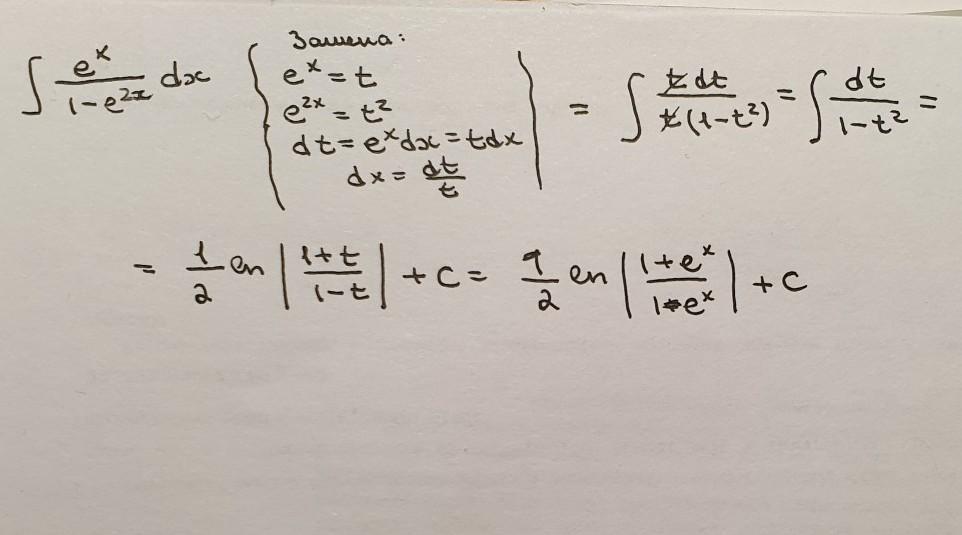 ∫ eˣ/(1-e²ˣ) dx { Замена: eˣ = t
e²ˣ = t²
dt = eˣdx = tdx
dx = dt/t | = ∫ t dt/(t(1-t²)) = ∫ dt/(1-t²) =
= 1/2 ln |(1+t)/(1-t)| + C = 1/2 ln |(1+eˣ)/(1-eˣ)| + C